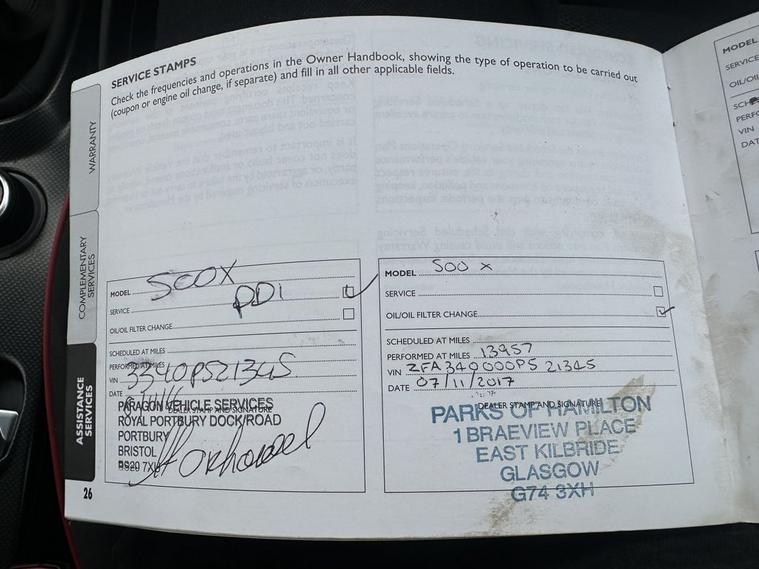 SERVICE STAMPS
Check the frequencies and operations in the Owner Handbook, showing the type of operation to be carried out
(coupon or engine oil change, if separate) and fill in all other applicable fields.
WARRANTY
COMPLEMENTARY
SERVICES
ASSISTANCE
SERVICES
MODEL 500X
SERVICE PDI
OIL/OIL FILTER CHANGE
SCHEDULED AT MILES
PERFORMED AT MILES
VIN 3340P521345
DATE
DEALER STAMP AND SIGNATURE
PARAGON VEHICLE SERVICES
ROYAL PORTBURY DOCK/ROAD
PORTBURY
BRISTOL
BS20 7XH
26
MODEL 500 X
SERVICE
OIL/OIL FILTER CHANGE
SCHEDULED AT MILES
PERFORMED AT MILES 13957
VIN ZFA340000P5 21345
DATE 07/11/2017
DEALER STAMP AND SIGNATURE
PARKS OF HAMILTON
1 BRAEVIEW PLACE
EAST KILBRIDE
GLASGOW
G74 3XH
MODEL
SERVICE
OIL/OIL
VIN